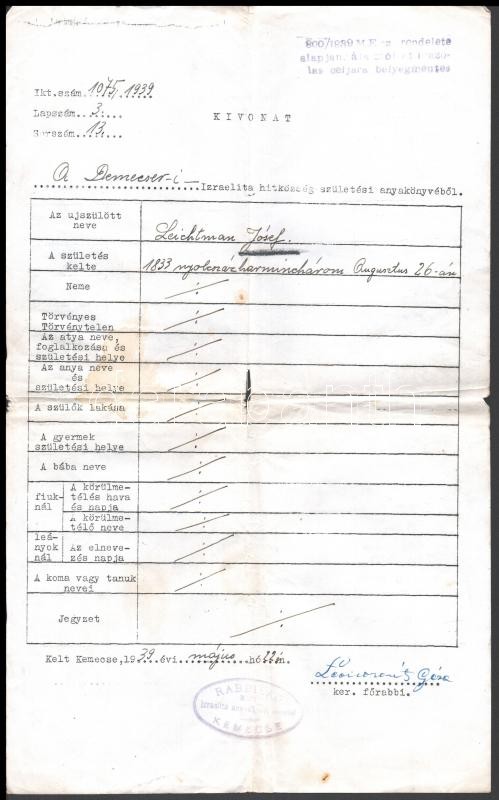 alapjan
bélyegmentes
Ikt.szám. 1075/1939
Lapszám. 3.
Sorszám. 13.
KIVONAT
A Demecser-i-
Izraelita hitközség születési anyakönyvéből.
Az ujszülött
neve
Leichtman József.
A születés
kelte
1833 nyolcszázharminchárom Augusztus 26-án
Neme
Törvényes
Törvénytelen
Az atya neve,
foglalkozása és
születési helye
Az anya neve
és
születési helye
A szülők lakása
A gyermek
születési helye
A bába neve
fiuk-
nál
A körülme-
télés hava
és napja
A körülme-
télő neve
leá-
nyok
nál
Az elneve-
zés napja
A koma vagy tanuk
nevei
Jegyzet
Kelt Kemecse, 1939 évi május hó 22én.
Géza
ker. főrabbi.
Izraelita
KEMECSE